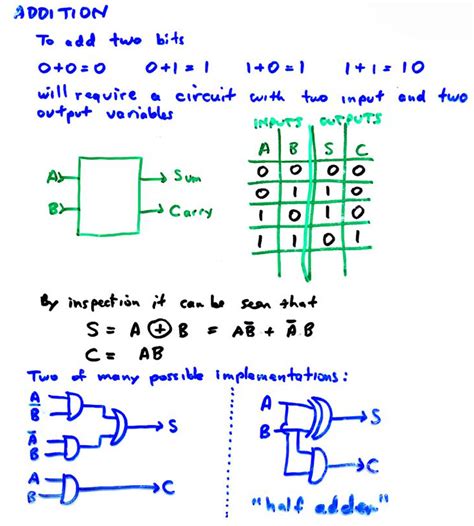 ADDITION
To add two bits
0+0=0 0+1=1 1+0=1 1+1=10
will require a circuit with two input and two
output variables
INPUTS OUTPUTS
A B S C
0 0 0 0
0 1 1 0
1 0 1 0
1 1 0 1
A Sum
B Carry
By inspection it can be seen that
S = A ⊕ B = AB̅ + A̅B
C = AB
Two of many possible implementations:
A
B̅
S
A̅
B
A
B
C
A
B
S
C
"half adder"